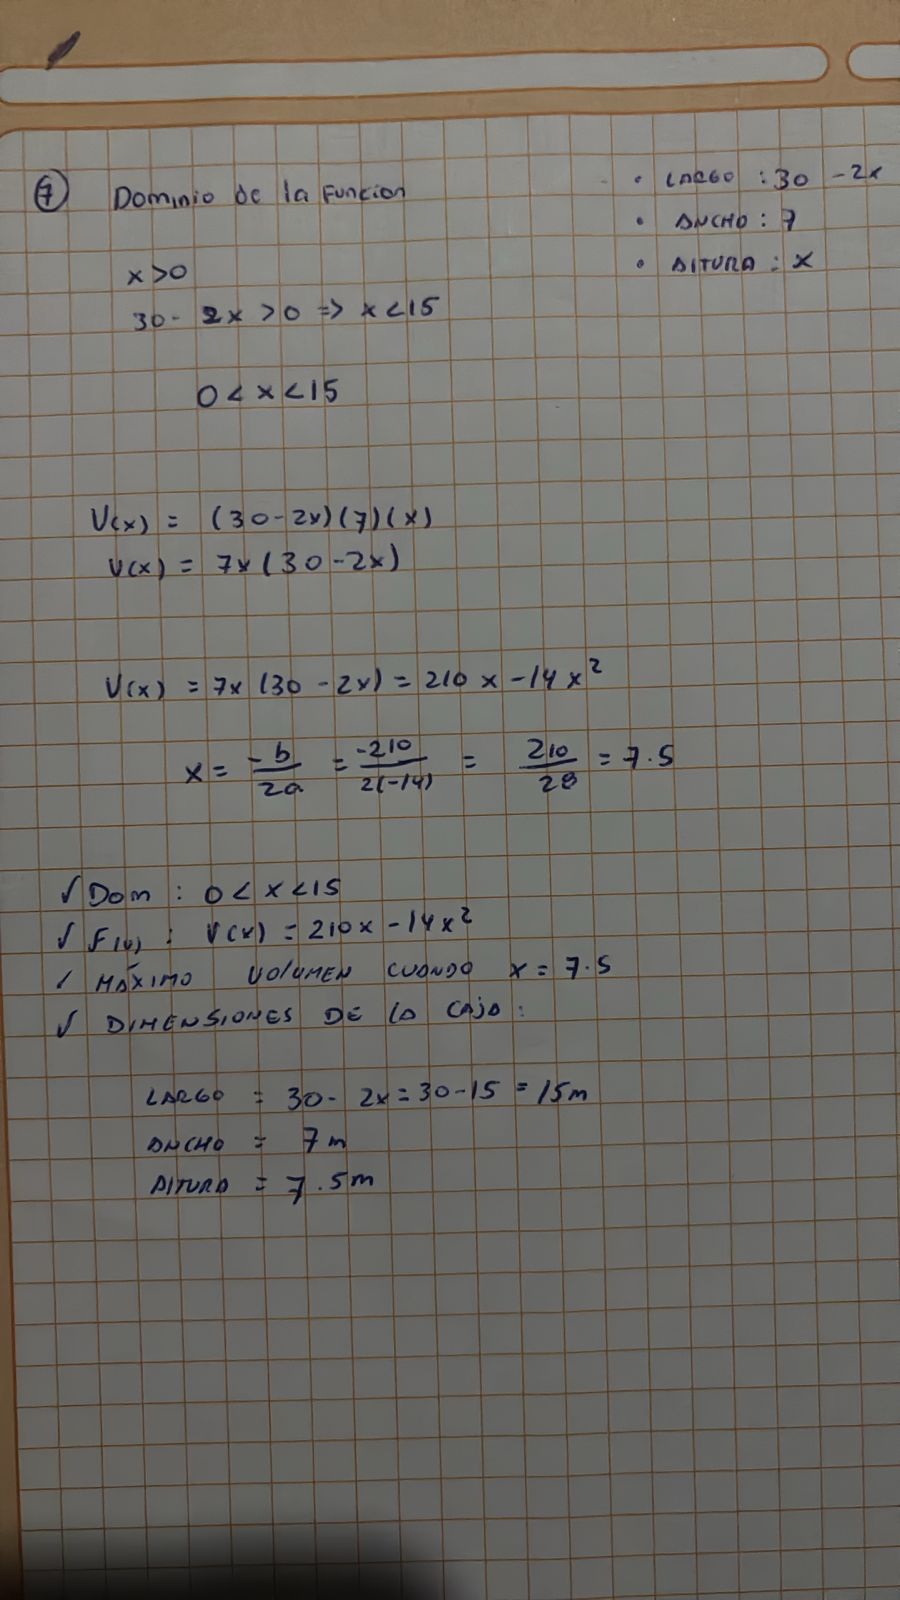 7 Dominio de la Funcion
• LARGO : 30 - 2x
• ANCHO : 7
• ALTURA : x
x > 0
30 - 2x > 0 => x < 15
0 < x < 15
V(x) = (30 - 2x)(7)(x)
V(x) = 7x(30 - 2x)
V(x) = 7x (30 - 2x) = 210 x - 14 x²
x = -b/2a = -210/2(-14) = 210/28 = 7.5
✓ Dom : 0 < x < 15
✓ F(v) : V(x) = 210x - 14x²
✓ MÁXIMO VOLUMEN CUANDO x = 7.5
✓ DIMENSIONES DE LA CAJA :
LARGO = 30 - 2x = 30 - 15 = 15m
ANCHO = 7m
ALTURA = 7.5m